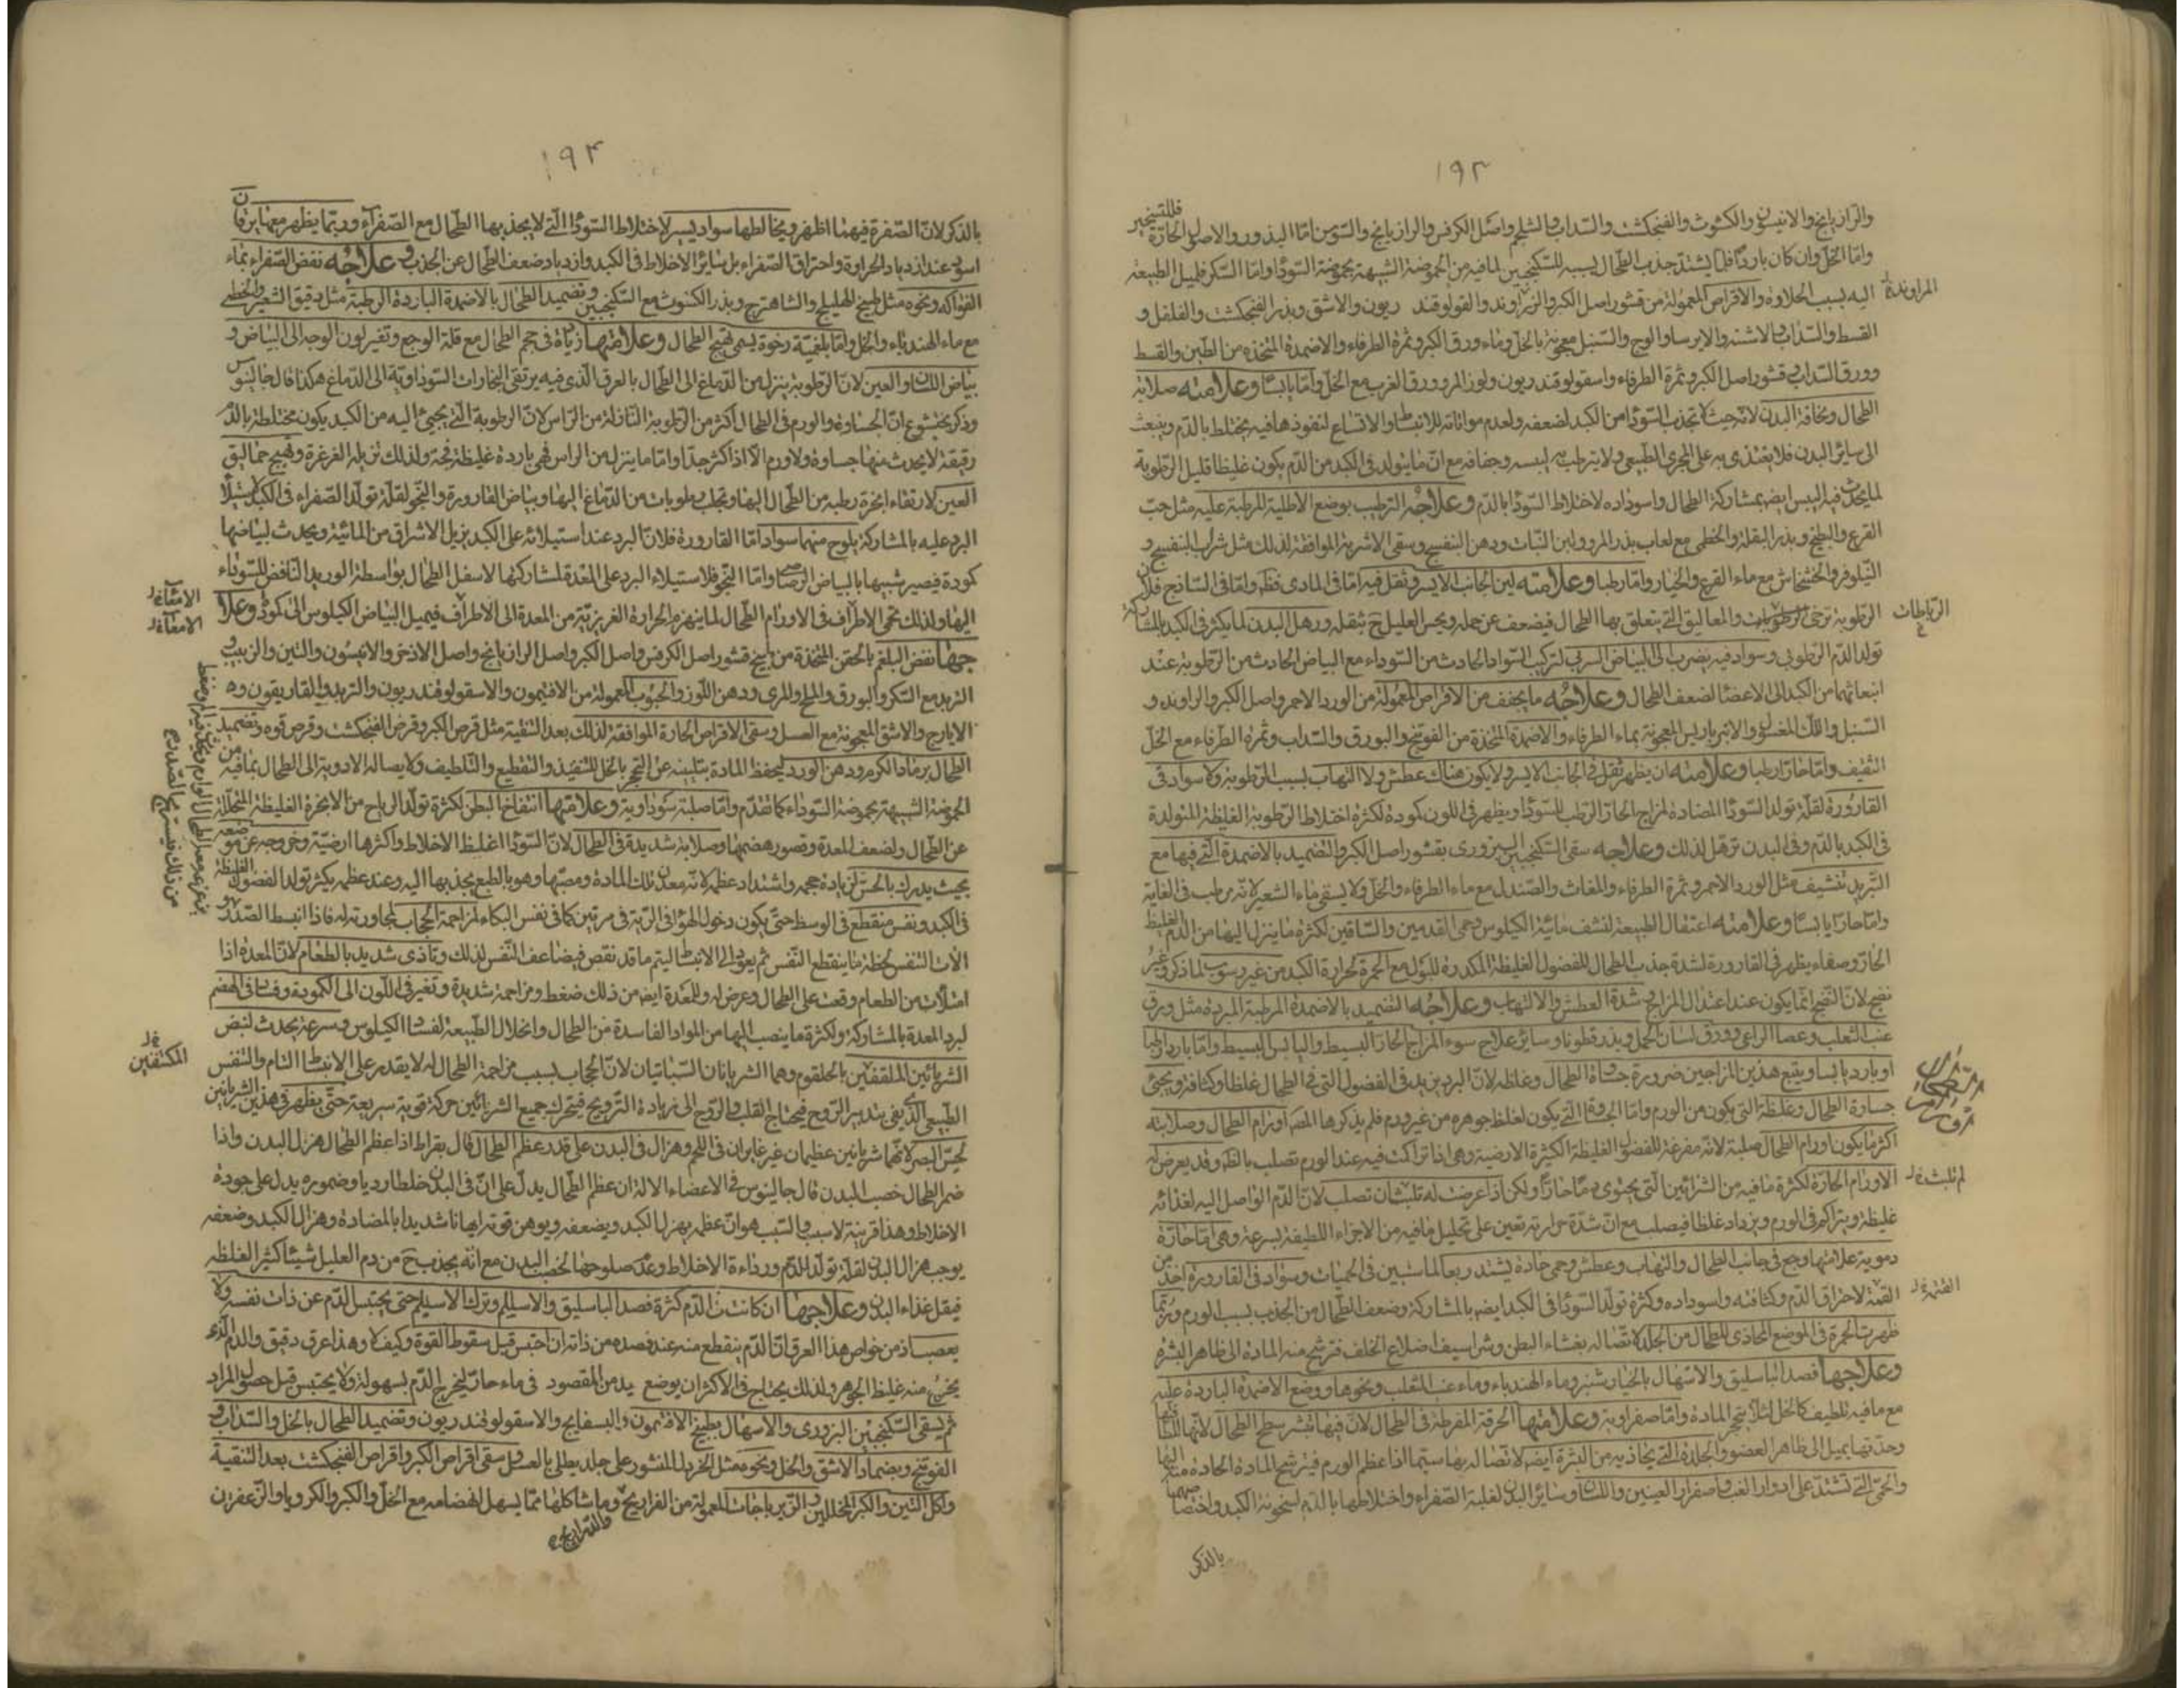 ١٩٣
والرازيانج والانيسون والكشوث والفنجنكشت والسداب والشلجم واصل الكرفس والرازيانج والسوس امّا البذور والاصول الحارّة فللتسخير
وامّا الخلّ وان كان باردًا فلما يشتدّ جذب الطحال بسببه للسكنجبين لما فيه من الحموضة الشبيهة بحموضة السوداء وامّا السكر فلميل الطبيعة
اليه بسبب الحلاوة والاقراص المعمولة من قشور اصل الكبر والزراوند والفولوقند ريون والاشق وبذر الفنجنكشت والفلفل و
القسط والسداب والاشنه والايرسا والوج والسنبل معجونة بالخل وماء ورق الكبر وثمرة الطرفاء والاضمدة المتخذة من الطين والقسط
وورق السداب وقشور اصل الكبر وثمرة الطرفاء واسقولوقندريون ولوز المر وورق الغرب مع الخل وامّا يابسًا وعلامته صلابة
الطحال ونحافة البدن لانه حيث لا تجذب السوداء من الكبد لضعفه ولعدم مواتاته للانبساط والاتساع لنفوذها فيه يختلط بالدم وينبعث
الى سائر البدن فلا يغتذى به على المجرى الطبيعى ولا يترطب به ليبسه وجفافه مع انّ ما يتولد فى الكبد من الدم يكون غليظا قليل الرطوبة
لما يحدث فيه اليبس ايضا بمشاركة الطحال واسوداده لاختلاط السوداء بالدم وعلاجه الترطيب بوضع الاطلية المرطبة عليه مثل حب
القرع والبطيخ وبذر البقلة والخطمى مع لعاب بذر المرو ولبن النبات ودهن البنفسج وسقى الاشربة الموافقة لذلك مثل شراب البنفسج و
النيلوفر والخشخاش مع ماء القرع والخيار وامّا رطبا وعلامته لين الجانب الايسر وثقل فيه امّا فى المادى فظ وامّا فى الساذج فلان
الرطوبة ترخى الرطوبات والمعاليق التى يتعلق بها الطحال فيضعف عن حمله ويحس العليل ح بثقله ورهل البدن لما يكثر فى الكبد بالمشاركة
تولد الدم الرطوبى وسواد فيه يضرب الى البياض السربى لتركيب السواد الحادث من السوداء مع البياض الحادث من الرطوبة عند
انبعاثهما من الكبد الى الاعضا لضعف الطحال وعلاجه ما يجفف من الاقراص المعمولة من الورد الاحمر واصل الكبر والراوند و
السنبل واللك المغسول والانبرباريس المعجونة بماء الطرفاء والاضمدة المتخذة من الفوتنج والبورق والسداب وثمرة الطرفاء مع الخل
الثقيف وامّا حارّا رطبا وعلامته ان يظهر ثقل فى الجانب الايسر ولا يكون هناك عطش ولا التهاب بسبب الرطوبة ولا سواد فى
القارورة لقلة تولد السوداء المضادة لمزاج الحار الرطب للسوداء ويظهر فى اللون كمودة لكثرة اختلاط الرطوبة الغليظة المتولدة
فى الكبد بالدم وفى البدن ترهل لذلك وعلاجه سقى السكنجبين البزورى بقشور اصل الكبر والتضميد بالاضمدة التى فيها مع
التبريد تنشيف مثل الورد الاحمر وثمرة الطرفاء والمغاث والصندل مع ماء الطرفاء والخل ولا يسقى ماء الشعير لانه مرطب فى الغاية
وامّا حارّا يابسًا وعلامته اعتقال الطبيعة لنشف مائية الكيلوس وحمى القدمين والساقين لكثرة ما ينزل اليها من الدم الغليظ
الحار وصفاء يظهر فى القارورة لشدة جذب الطحال للفضول الغليظة المكدرة للبول مع الحمرة لحرارة الكبد من غير رسوب لما ذكر وغير
نضج لانّ النضج انما يكون عند اعتدال المزاج وشدة العطش والالتهاب وعلاجه التضميد بالاضمدة المرطبة المبردة مثل ورق
عنب الثعلب وعصا الراعى وورق لسان الحمل وبذر قطونا وسائر علاج سوء المزاج الحار البسيط واليابس البسيط وامّا باردا رطبا
او باردا يابسا ويتبع هذين المزاجين ضرورة جسأة الطحال وغلظه لانّ البرد يزيد فى الفضول التى فى الطحال غلظا وكثافة ويجىء
جساوة الطحال وغلظه التى يكون من الورم وامّا الجساوة التى يكون لغلظ جوهره من غير ورم فلم يذكرها المص اورام الطحال وصلابته
اكثر ما يكون اورام الطحال صلبة لانه مفرغة للفضول الغليظة الكثيرة الارضية وهى اذا تراكمت فيه عند الورم تصلب بالظ وقد يعرض له
الاورام الحارّة لكثرة ما فيه من الشرايين التى يحتوى دما حارّا ولكن اذا عرضت له تلبثان تصلب لانّ الدم الواصل اليه لغذائه
غليظة ويتراكم فى الورم ويزداد غلظا فيصلب مع انّ شدة حرارته تعين على تحليل ما فيه من الاجزاء اللطيفة بسرعة وهى امّا حارّة
دموية علامتها وجع فى جانب الطحال والتهاب وعطش وحمى حادة يشتد ربعا لما سبين فى الحميات وسواد فى القارورة احد من
القتمة لاحتراق الدم وكثافته واسوداده وكثرة تولد السوداء فى الكبد ايضا بالمشاركة وضعف الطحال من الجذب بسبب الورم وربما
ظهرت الحمرة فى الموضع المحاذى للطحال من الجلد لاتصاله بغشاء البطن وشراسيف اضلاع الخلف فترشح منه المادة الى ظاهر البشرة
وعلاجها فصد الباسليق والاسهال بالخيار شنبر وماء الهندباء وماء عنب الثعلب ونحوها ووضع الاضمدة الباردة عليه
مع ما فيه تلطيف كالخل لئلا يتحجر المادة وامّا صفراوية وعلامتها الحرقة المفرطة فى الطحال
وحدتها يميل الى ظاهر العضو والجلدة التى يحاذيه من البشرة ايضا لاتصاله بها سيما اذا عظم الورم فيترشح المادة الحادة منه اليها
والحمى التى تشتد على ادوار الغب واصفرار العينين واللسان وسائر البدن لغلبة الصفراء واختلاطها بالدم لسخونة الكبد
بالذكر
الراوند
الرباطات
لم تلبث
القتمة
١٩٤
بالذكر لانّ الصفرة فيهما اظهر ويخالطها سواد يسير لاختلاط السوداء التى لا يجذبها الطحال مع الصفراء وربما يظهر معها يرقان
اسود عند ازدياد الحرارة واحتراق الصفراء بل سائر الاخلاط فى الكبد وازدياد ضعف الطحال عن الجذب وعلاجه نفض الصفراء بماء
الفواكه ونحوه مثل طبيخ الهليلج والشاهترج وبذر الكشوث مع السكنجبين وتضميد الطحال بالاضمدة الباردة الرطبة مثل دقيق الشعير والخطمى
مع ماء الهندباء والخل وامّا بلغمية رخوة يسمى تهيج الطحال وعلامتها زيادة فى حجم الطحال مع قلة الوجع وتغير لون الوجه الى البياض و
بياض اللسان والعين لانّ الرطوبة ينزل من الدماغ الى الطحال بالعرق الذى فيه يرتقى البخارات السوداوية الى الدماغ هكذا قال جالينوس
وذكر بختيشوع انّ الجساوة والورم فى الطحال اكثر من الرطوبة النازلة من الراس لانّ الرطوبة التى يجىء اليه من الكبد يكون مختلطة بالدم
رقيقة لا يحدث منها جساوة ولا ورم الا اذا كثر جدا وامّا ما ينزل من الراس فهى باردة غليظة فجة ولذلك نزيله الغرغرة وتهيج حماليق
العين لارتقاء ابخرة رطبة من الطحال اليها وتجلب رطوبات من الدماغ اليها وبياض القارورة والنجو لقلة تولد الصفراء فى الكبد لاستيلاء
البرد عليه بالمشاركة يلوح منهما سواد امّا القارورة فلانّ البرد عند استيلائه على الكبد يزيل الاشراق من المائية ويحدث لبياضها
كمودة فيصير شبيها بالبياض الرصاصى وامّا النجو فلاستيلاء البرد على المعدة لمشاركتها لاسفل الطحال بواسطة الوريد النافض للسوداء
اليها ولذلك تحمى الاطراف فى الاورام الطحال لما ينهزم الحرارة الغريزية من المعدة الى الاطراف فيميل البياض الكيلوس الى كمودة وعلا
جها نفض البلغم بالحقن المتخذة من طبيخ قشور اصل الكرفس واصل الكبر واصل الرازيانج واصل الاذخر والانيسون والتين والزبيب
التربد مع السكر والبورق والملح والمرى ودهن اللوز والحبوب المعمولة من الافتيمون والاسقولوقندريون والتربد والغاريقون و
الايارج والاشق المعجونة مع العسل وسقى الاقراص الحارة الموافقة لذلك بعد التنقية مثل قرص الكبر وقرص الفنجنكشت وقرص فوه وتضميد
الطحال برماد الكرم ودهن الورد ليحفظ المادة بتليينه عن التحجر بالخل للتنفيذ والتقطيع والتلطيف ولايصاله الادوية الى الطحال بما فيه من
الحموضة الشبيهة بحموضة السوداء كما تقدم وامّا صلبة سوداوية وعلامتها انتفاخ البطن لكثرة تولد الرياح من الابخرة الغليظة المتحللة
عن الطحال ولضعف المعدة وقصور هضمها وصلابة شديدة فى الطحال لانّ السوداء اغلظ الاخلاط واكثرها ارضية وخروجه عن موضعه
بحيث يدرك بالحس لزيادة حجمه واشتداد عظمه لانه معدن تلك المادة ومصبها وهو بالطبع يجذبها اليه وعند عظمه يكثر تولد الفضول الغليظة
فى الكبد ونفس منقطع فى الوسط حتى يكون دخول الهواء فى الرية فى مرتين كما فى نفس البكاء لمزاحمة الحجاب لمجاورته له فاذا انبسط الصدر و
الات التنفس لحظة ما ينقطع النفس ثم يعود الى الانبساط ليتم ما قد نقص فيضاعف النفس لذلك وتاذى شديد بالطعام لانّ المعدة اذا
امتلأت من الطعام وقعت على الطحال وعرض له وللمعدة ايضا من ذلك ضغط ومزاحمة شديدة وتغير فى اللون الى الكمودة وفساد فى الهضم
لبرد المعدة بالمشاركة ولكثرة ما ينصب اليها من المواد الفاسدة من الطحال وانحلال الطبيعة لفساد الكيلوس وسرعة يحدث لنبض
الشريانين الملتفين بالحلقوم وهما الشريانان السباتيان لانّ الحجاب بسبب مزاحمة الطحال له لا يقدر على الانبساط التام والتنفس
الطبيعى الذى يفى بتدبير الروح فيحتاج القلب والروح الى زيادة الترويح فيتحرك جميع الشرائين حركة قوية سريعة حتى يظهر فى هذين الشريانين
لحس البصر لانهما شريانين عظيمان غير غائران فى اللحم وهزال فى البدن على قدر عظم الطحال قال بقراط اذا عظم الطحال هزل البدن واذا
ضمر الطحال خصب البدن قال جالينوس فى الاعضاء الالمة ان عظم الطحال يدل على انّ فى البدن خلطا رديا وضموره يدل على جودة
الاخلاط وهذا قرينة لا سبب والسبب هو انّ عظمه يهزل الكبد ويضعفه ويوهن قوته ايهانا شديدا بالمضادة وهزال الكبد وضعفه
يوجب هزال البدن لقلة تولد الدم ورداءة الاخلاط وعدم صلوحها لخصب البدن مع انه يجذب ح من دم العليل شيئا كثير الغلظه
فيقل غذاء البدن وعلاجها ان كانت من الدم كثرة فصد الباسليق والاسيلم وترك الاسيلم حتى يحتبس الدم عن ذات نفسه ولا
يعصب اذ من خواص هذا العرق انّ الدم ينقطع منه عند فصده من ذاته ان احتبس قبل سقوط القوة وكيف لا وهذا عرق دقيق والدم الذى
يخرج منه غليظ الجوهر ولذلك يحتاج فى الاكثر ان يوضع يد من المقصود فى ماء حار ليخرج الدم بسهولة ولا يحتبس قبل حصول المراد
ثم يسقى السكنجبين البزورى والاسهال بطبيخ الافتيمون والبسفايج والاسقولوقندريون وتضميد الطحال بالخل والسداب و
الفوتنج وبضماد الاشق والخل ونحوه مثل الخردل المنثور على جلد يطلى بالعسل وسقى اقراص الكبر واقراص الفنجنكشت بعد التنقية
واكل التين والكبر المخللين والزيرباجات المعمولة من الفراريج وما شاكلها مما يسهل انهضامه مع الخل والكبر والكرويا والزعفران
والدراريج
الامعاء
الامعاء